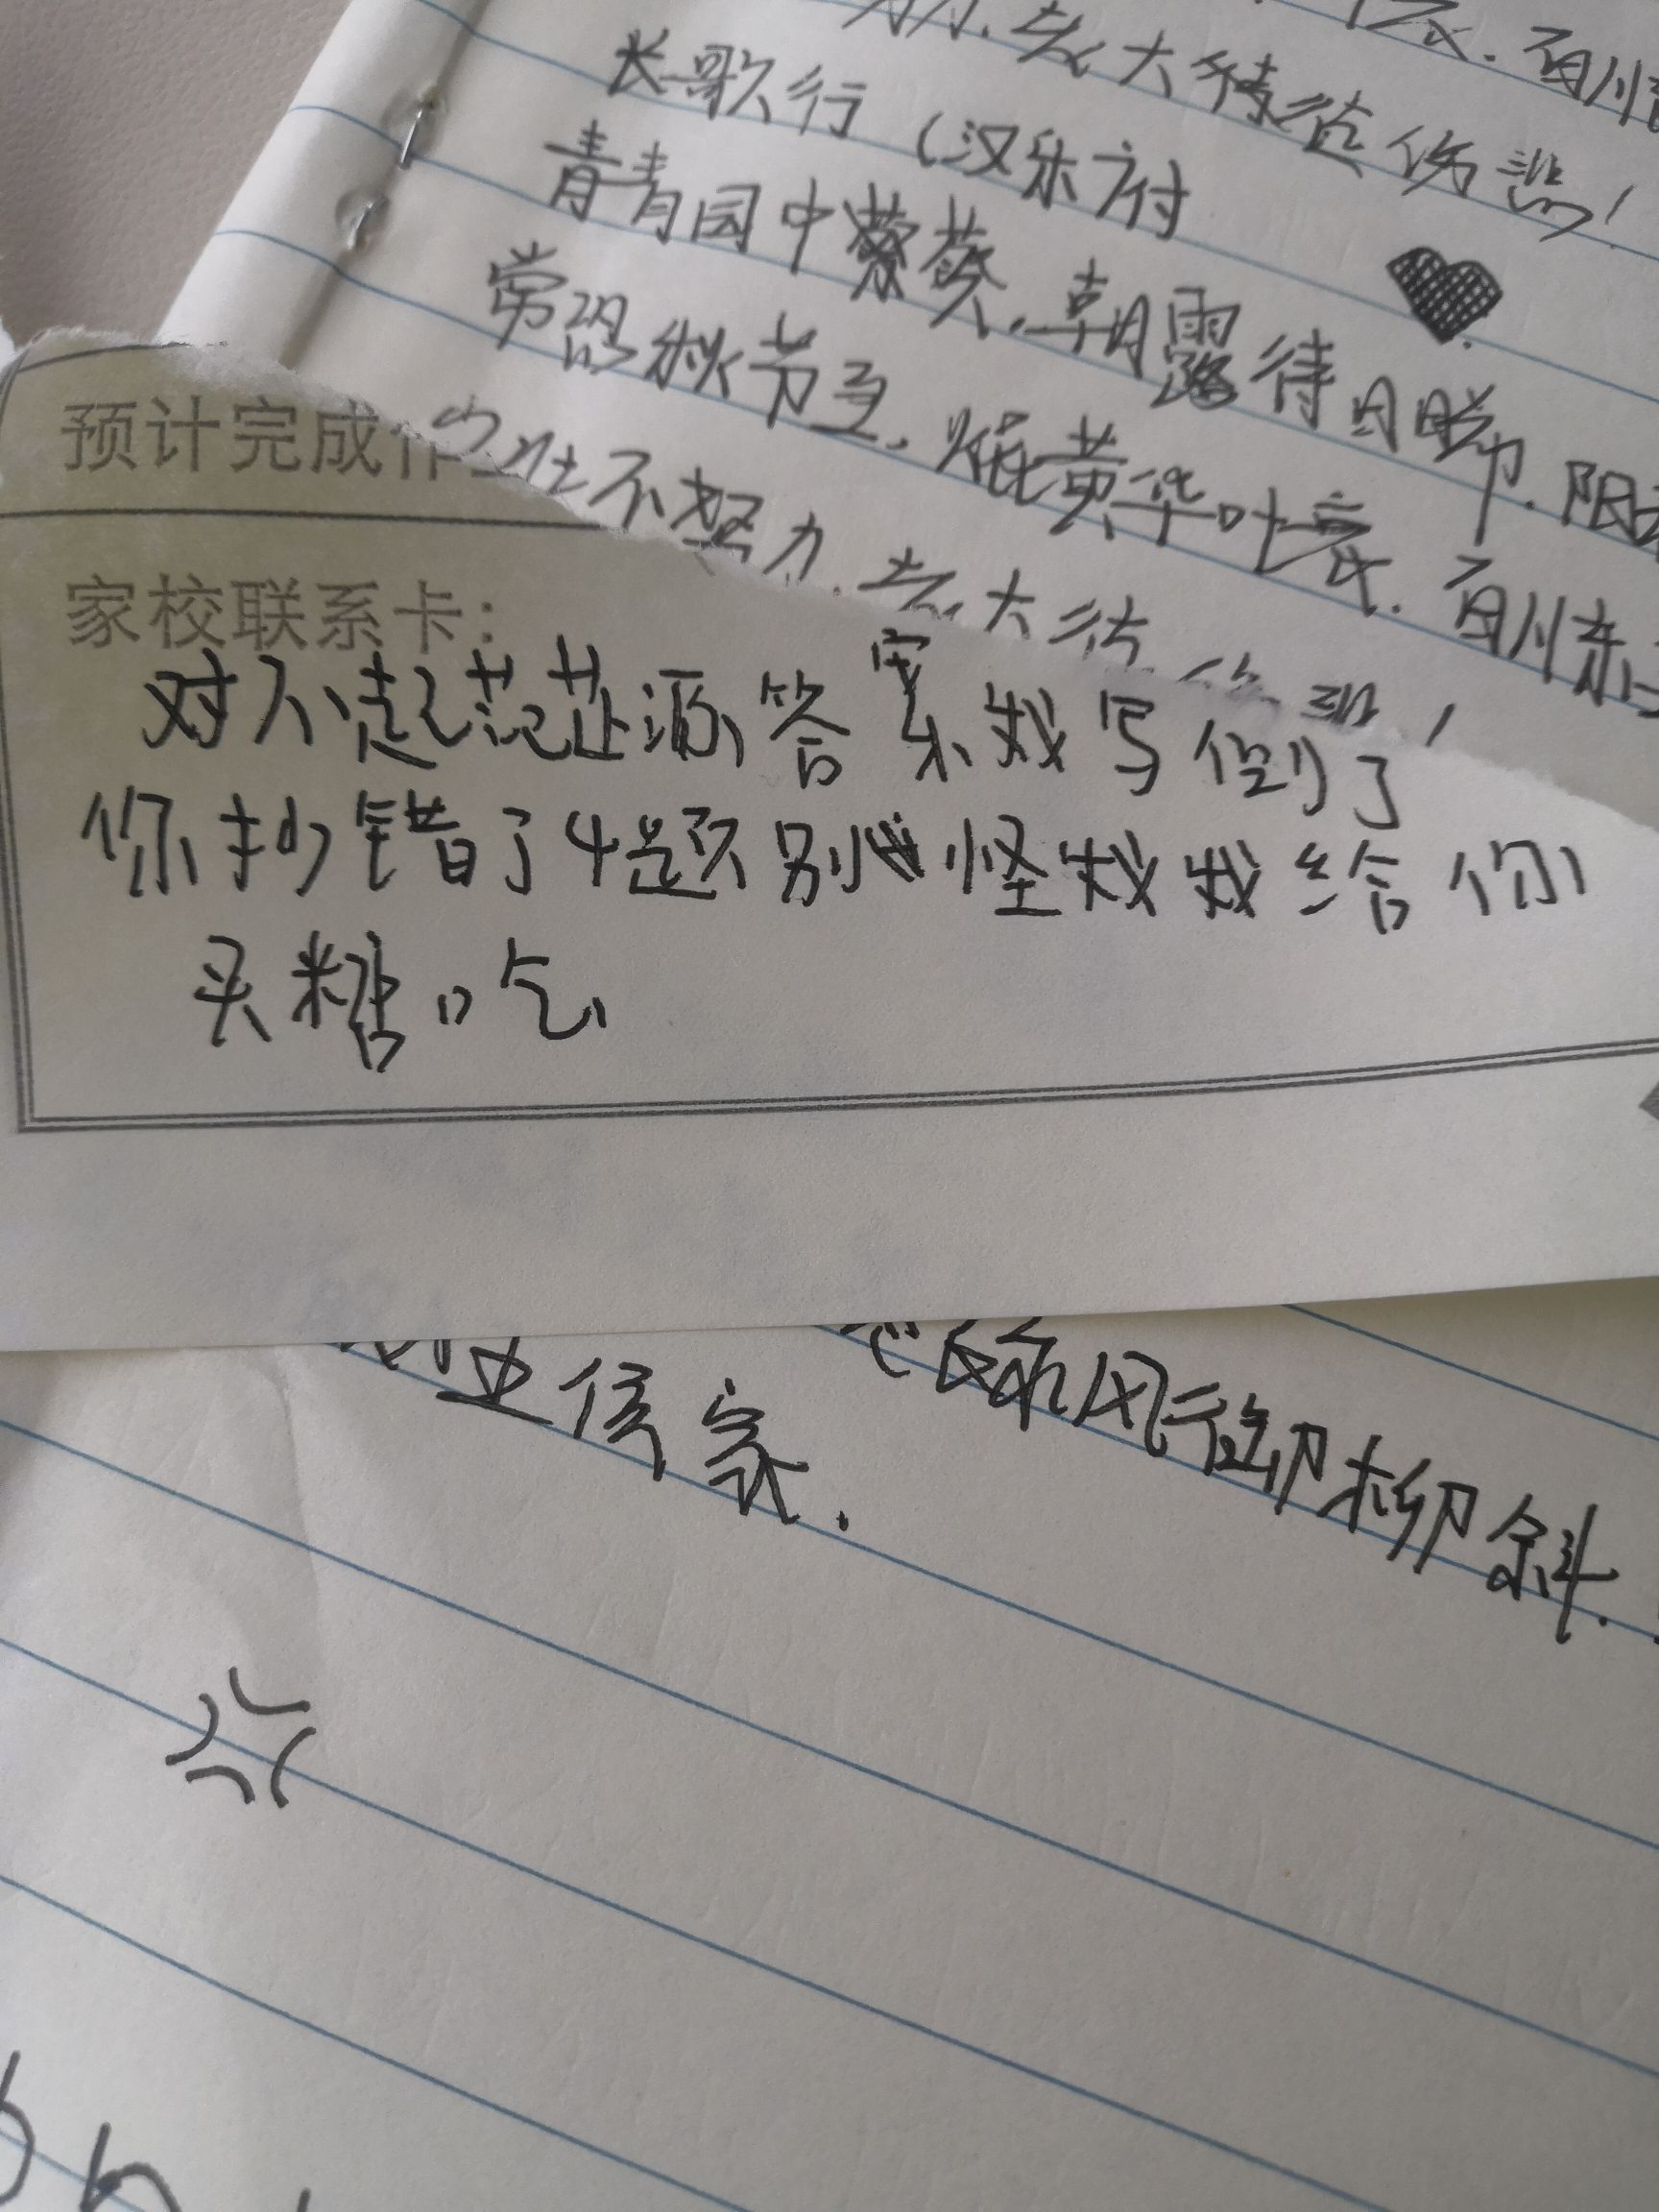 老大徒伤悲!
长歌行(汉乐府
青青园中葵,朝露待日晞.阳
常恐秋节至,焜黄华叶衰.百川东
不努力.老大徒伤悲!
预计完成作
家校联系卡:
对不起范芷源答案我写倒了
你抄错了4题别怪我我给你
买糖吃
风御柳斜.
侯家.